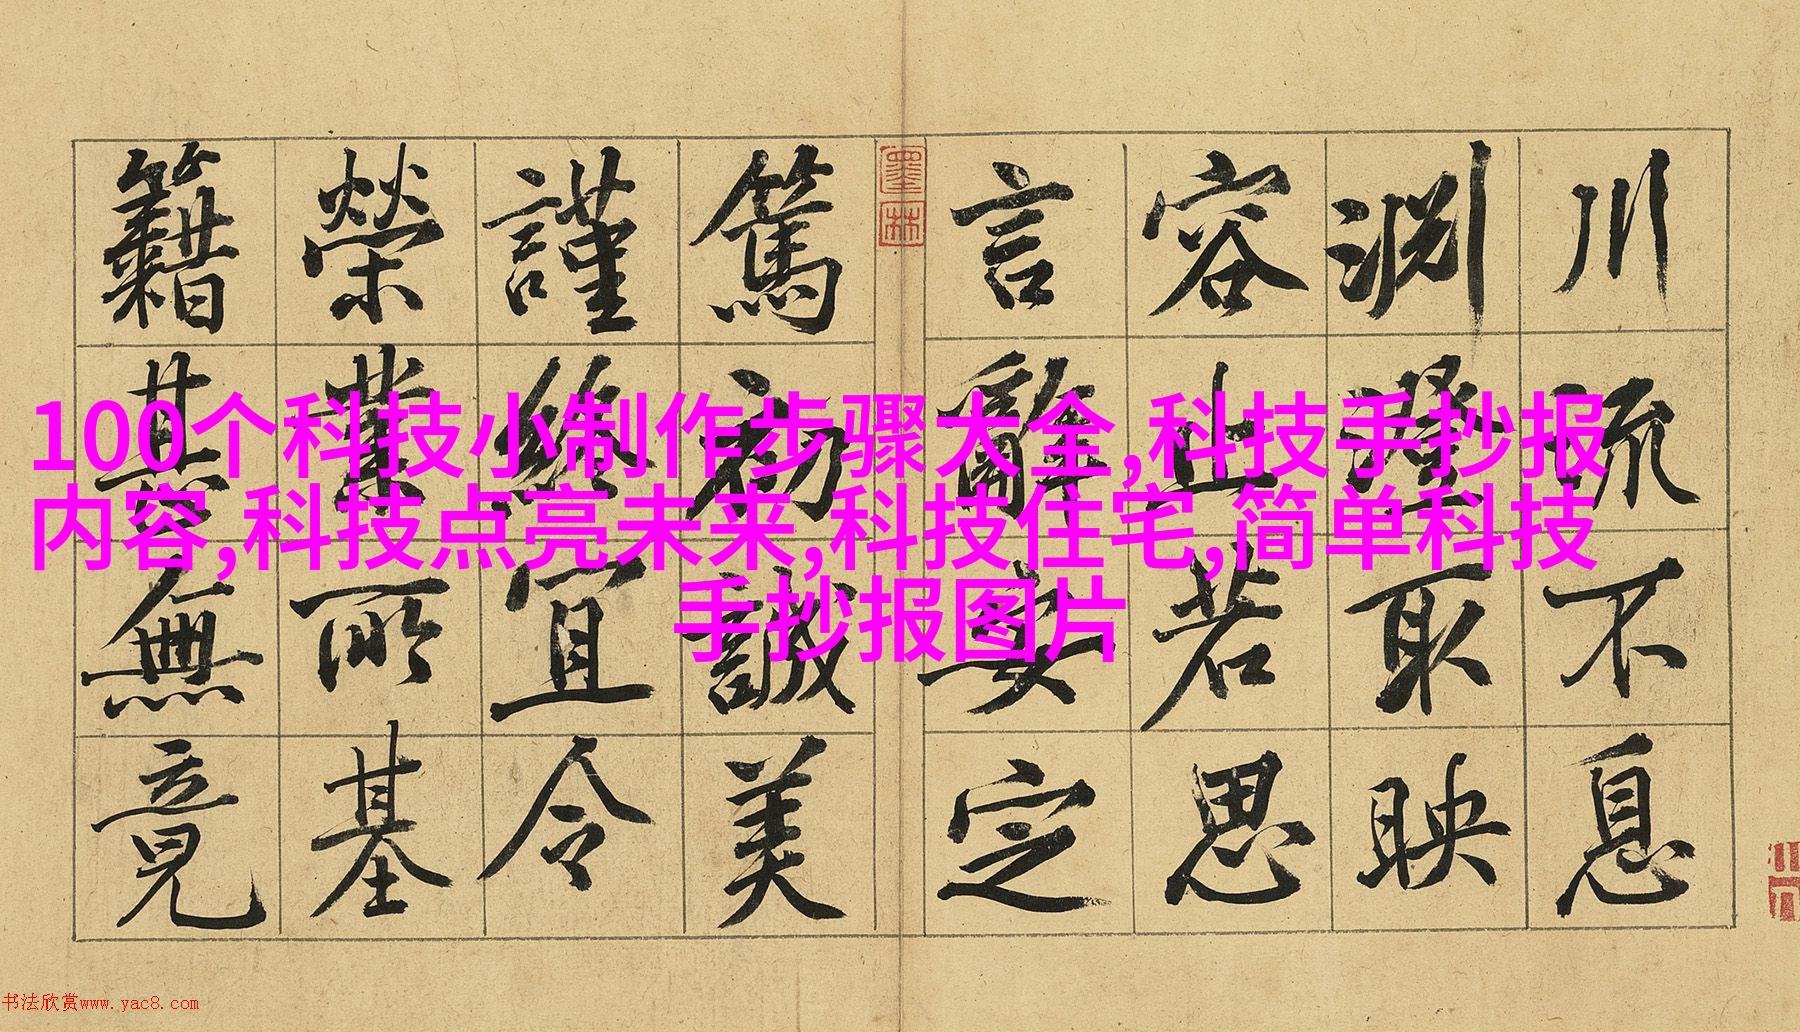 川流不息
淵澄取映
容止若思
言辭安定
墨林
篤初誠美
謹終宜令
榮業所基
籍甚無竟
100个科技小制作步骤大全,科技手抄报
内容,科技点亮未来,科技住宅,简单科技
手抄报图片
书法欣赏www.yac8.com